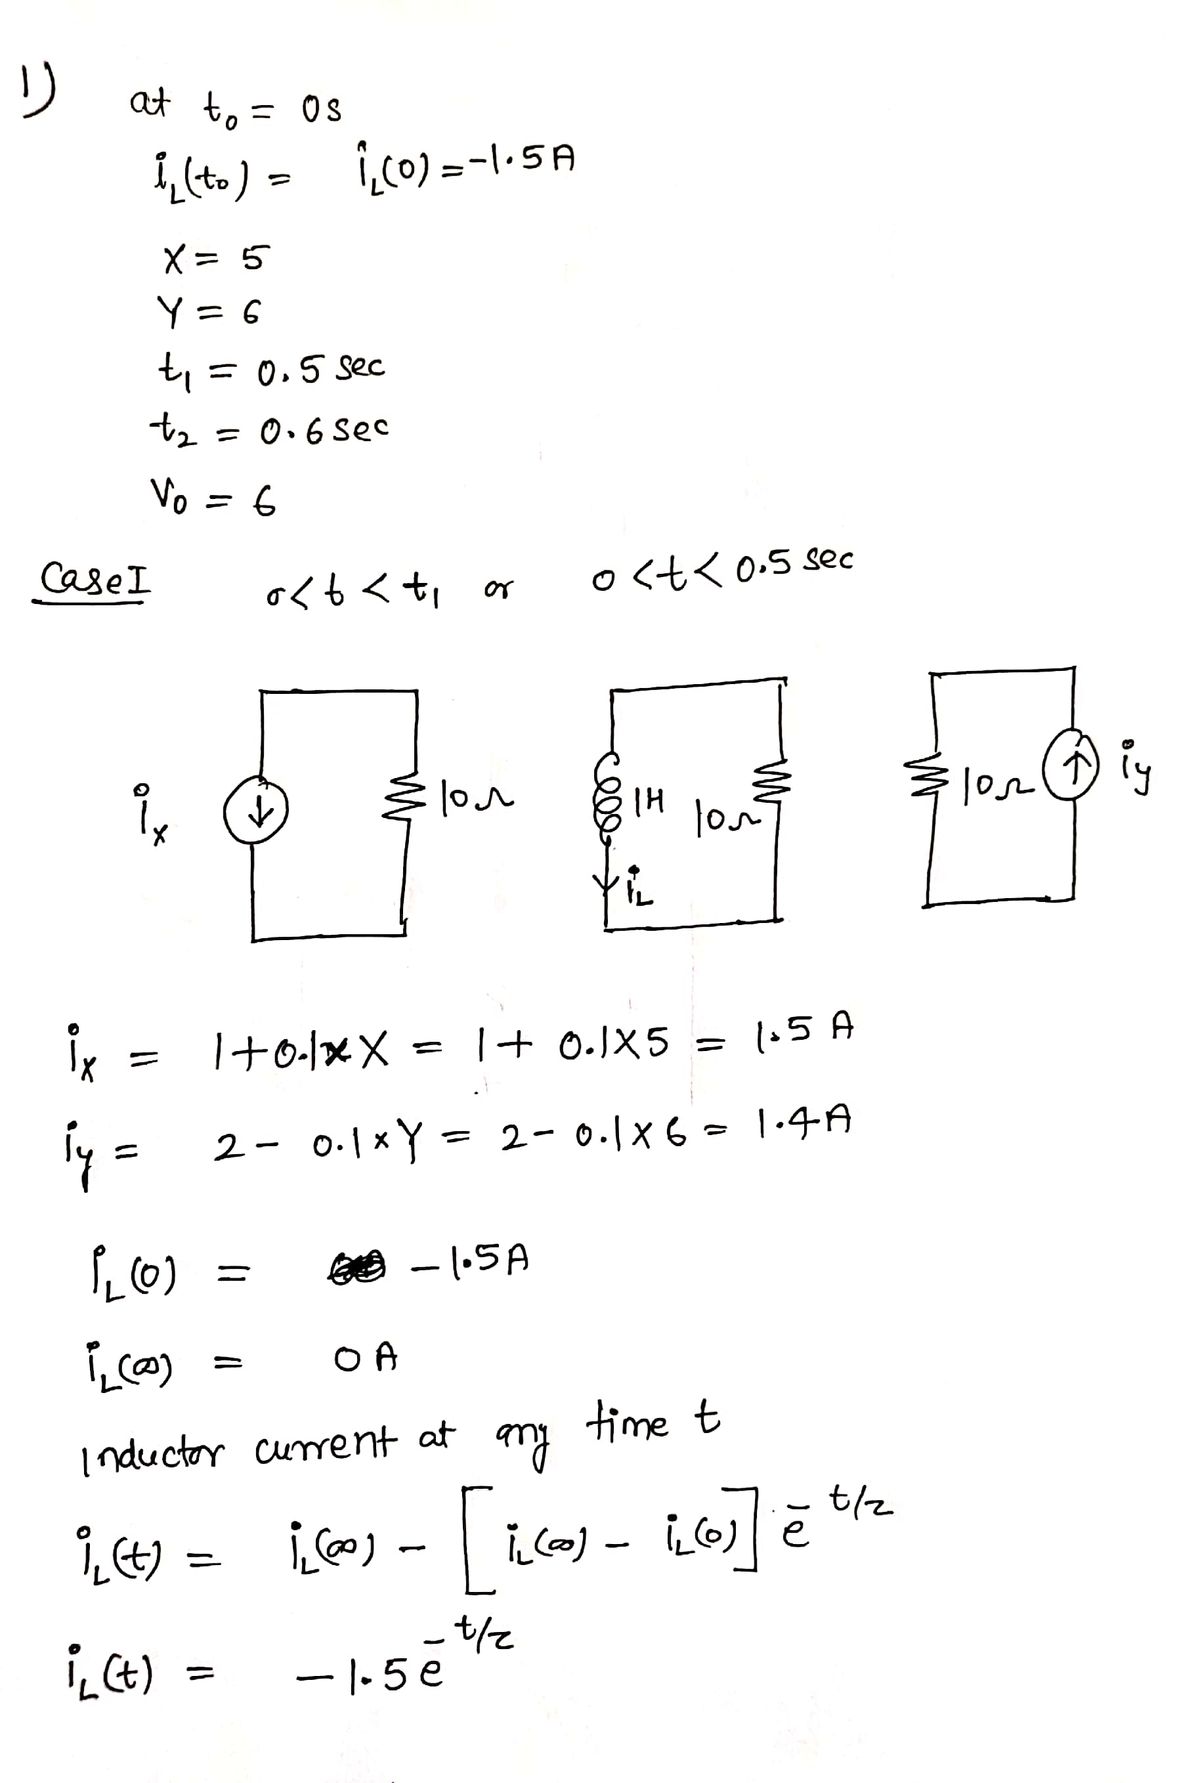 1)
at t₀ = 0s
i_L(t₀) = i_L(0) = -1.5A
X = 5
Y = 6
t₁ = 0.5 sec
t₂ = 0.6 sec
V₀ = 6
Case I 0<t<t₁ or 0<t<0.5 sec
i_x 10Ω 1H 10Ω 10Ω i_y
i_L
i_x = 1+0.1×X = 1+ 0.1×5 = 1.5 A
i_y = 2 - 0.1×Y = 2 - 0.1×6 = 1.4A
i_L(0) = -1.5A
i_L(∞) = 0 A
Inductor current at any time t
i_L(t) = i_L(∞) - [i_L(∞) - i_L(0)] e^-t/τ
i_L(t) = -1.5 e^-t/τ